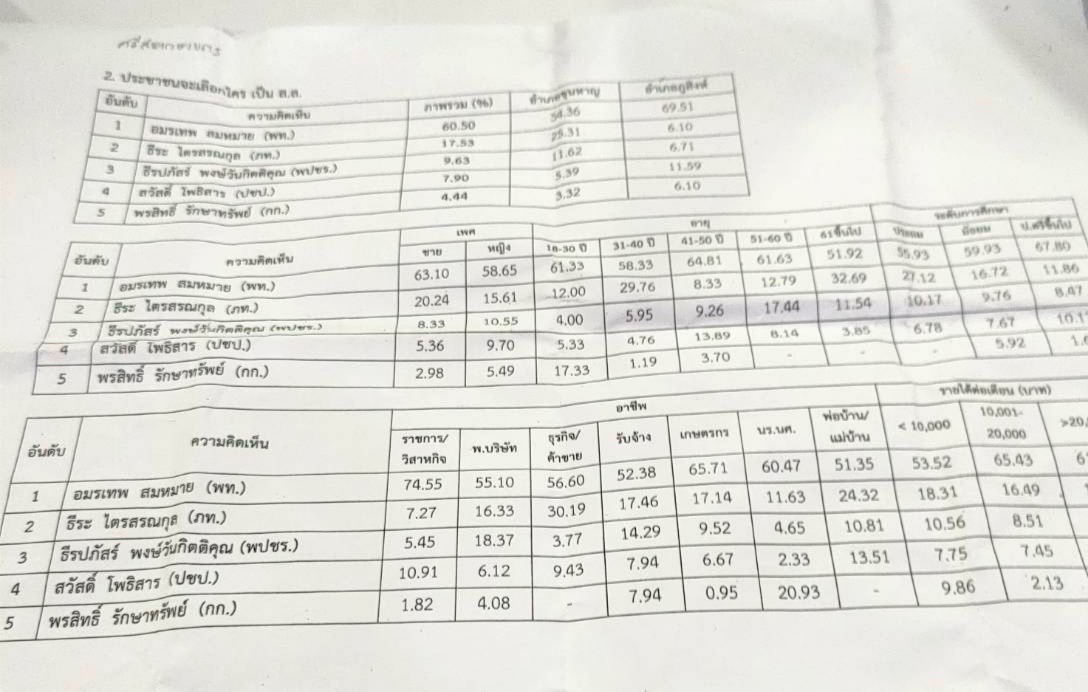 2. ประชาชนจะเลือกใคร เป็น ส.ส.
อันดับ ความคิดเห็น ภาพรวม (%) อำเภอขุนหาญ อำเภอภูสิงห์
1 อมรเทพ สมหมาย (พท.) 60.50 54.36 69.51
2 ธีระ ไตรสรณกุล (ภท.) 17.53 25.31 6.10
3 ธีรปภัสร์ พงษ์วันกิตติคุณ (พปชร.) 9.63 11.62 6.71
4 สวัสดิ์ โพธิสาร (ปชป.) 7.90 5.39 11.59
5 พรสิทธิ์ รักษาทรัพย์ (กก.) 4.44 3.32 6.10
เพศ อายุ ระดับการศึกษา
อันดับ ความคิดเห็น ชาย หญิง 18-30 ปี 31-40 ปี 41-50 ปี 51-60 ปี 61ขึ้นไป ประถม มัธยม ป.ตรีขึ้นไป
1 อมรเทพ สมหมาย (พท.) 63.10 58.65 61.33 58.33 64.81 61.63 51.92 55.93 59.93 67.80
2 ธีระ ไตรสรณกุล (ภท.) 20.24 15.61 12.00 29.76 8.33 12.79 32.69 27.12 16.72 11.86
3 ธีรปภัสร์ พงษ์วันกิตติคุณ (พปชร.) 8.33 10.55 4.00 5.95 9.26 17.44 11.54 10.17 9.76 8.47
4 สวัสดิ์ โพธิสาร (ปชป.) 5.36 9.70 5.33 4.76 13.89 8.14 3.85 6.78 7.67 10.1
5 พรสิทธิ์ รักษาทรัพย์ (กก.) 2.98 5.49 17.33 1.19 3.70 - - - 5.92
อาชีพ รายได้ต่อเดือน (บาท)
อันดับ ความคิดเห็น ราชการ/วิสาหกิจ พ.บริษัท ธุรกิจ/ค้าขาย รับจ้าง เกษตรกร นร.นศ. พ่อบ้าน/แม่บ้าน < 10,000 10,001-20,000 >20,
1 อมรเทพ สมหมาย (พท.) 74.55 55.10 56.60 52.38 65.71 60.47 51.35 53.52 65.43
2 ธีระ ไตรสรณกุล (ภท.) 7.27 16.33 30.19 17.46 17.14 11.63 24.32 18.31 16.49
3 ธีรปภัสร์ พงษ์วันกิตติคุณ (พปชร.) 5.45 18.37 3.77 14.29 9.52 4.65 10.81 10.56 8.51
4 สวัสดิ์ โพธิสาร (ปชป.) 10.91 6.12 9.43 7.94 6.67 2.33 13.51 7.75 7.45
5 พรสิทธิ์ รักษาทรัพย์ (กก.) 1.82 4.08 - 7.94 0.95 20.93 - 9.86 2.13